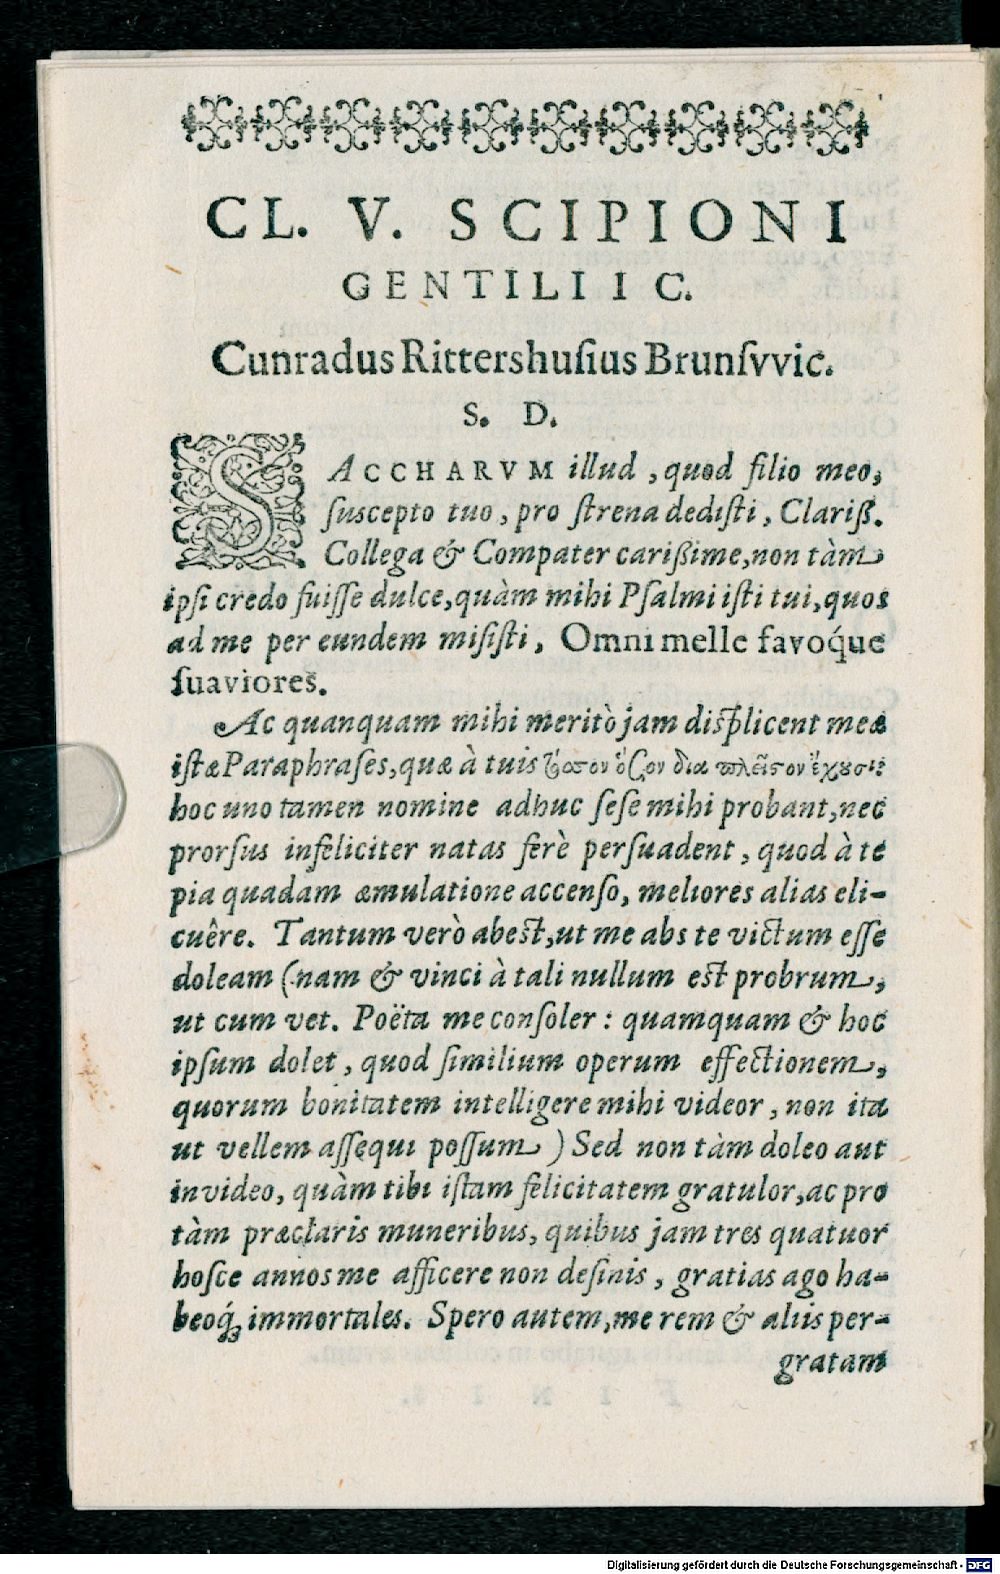 CL. V. SCIPIONI
GENTILI I C.
Cunradus Rittershuſius Brunſvvic.
S. D.
SACCHARVM illud, quod filio meo,
ſuscepto tuo, pro ſtrena dediſti, Clariß.
Collega & Compater carißime, non tàm
ipſi credo fuiſſe dulce, quàm mihi Pſalmi iſti tui, quos
ad me per eundem miſiſti, Omni melle favóque
ſuaviores.
Ac quanquam mihi meritò jam diſplicent meæ
iſtæ Paraphraſes, quæ à tuis ὅσον διὰ πλεῖστον ἔχουσι:
hoc uno tamen nomine adhuc ſeſe mihi probant, nec
prorſus infeliciter natas ferè perſuadent, quod à te
pia quadam æmulatione accenſo, meliores alias eli-
cuêre. Tantum verò abeſt, ut me abs te victum eſſe
doleam (nam & vinci à tali nullum eſt probrum,
ut cum vet. Poëta me conſoler: quamquam & hoc
ipſum dolet, quod ſimilium operum effectionem,
quorum bonitatem intelligere mihi videor, non ita
ut vellem aſſequi poſſum) Sed non tàm doleo aut
invideo, quàm tibi iſtam felicitatem gratulor, ac pro
tàm præclaris muneribus, quibus jam tres quatuor
hoſce annos me afficere non deſinis, gratias ago ha-
beoq́; immortales. Spero autem, me rem & aliis per-
gratam
Digitalisierung gefördert durch die Deutsche Forschungsgemeinschaft - DFG